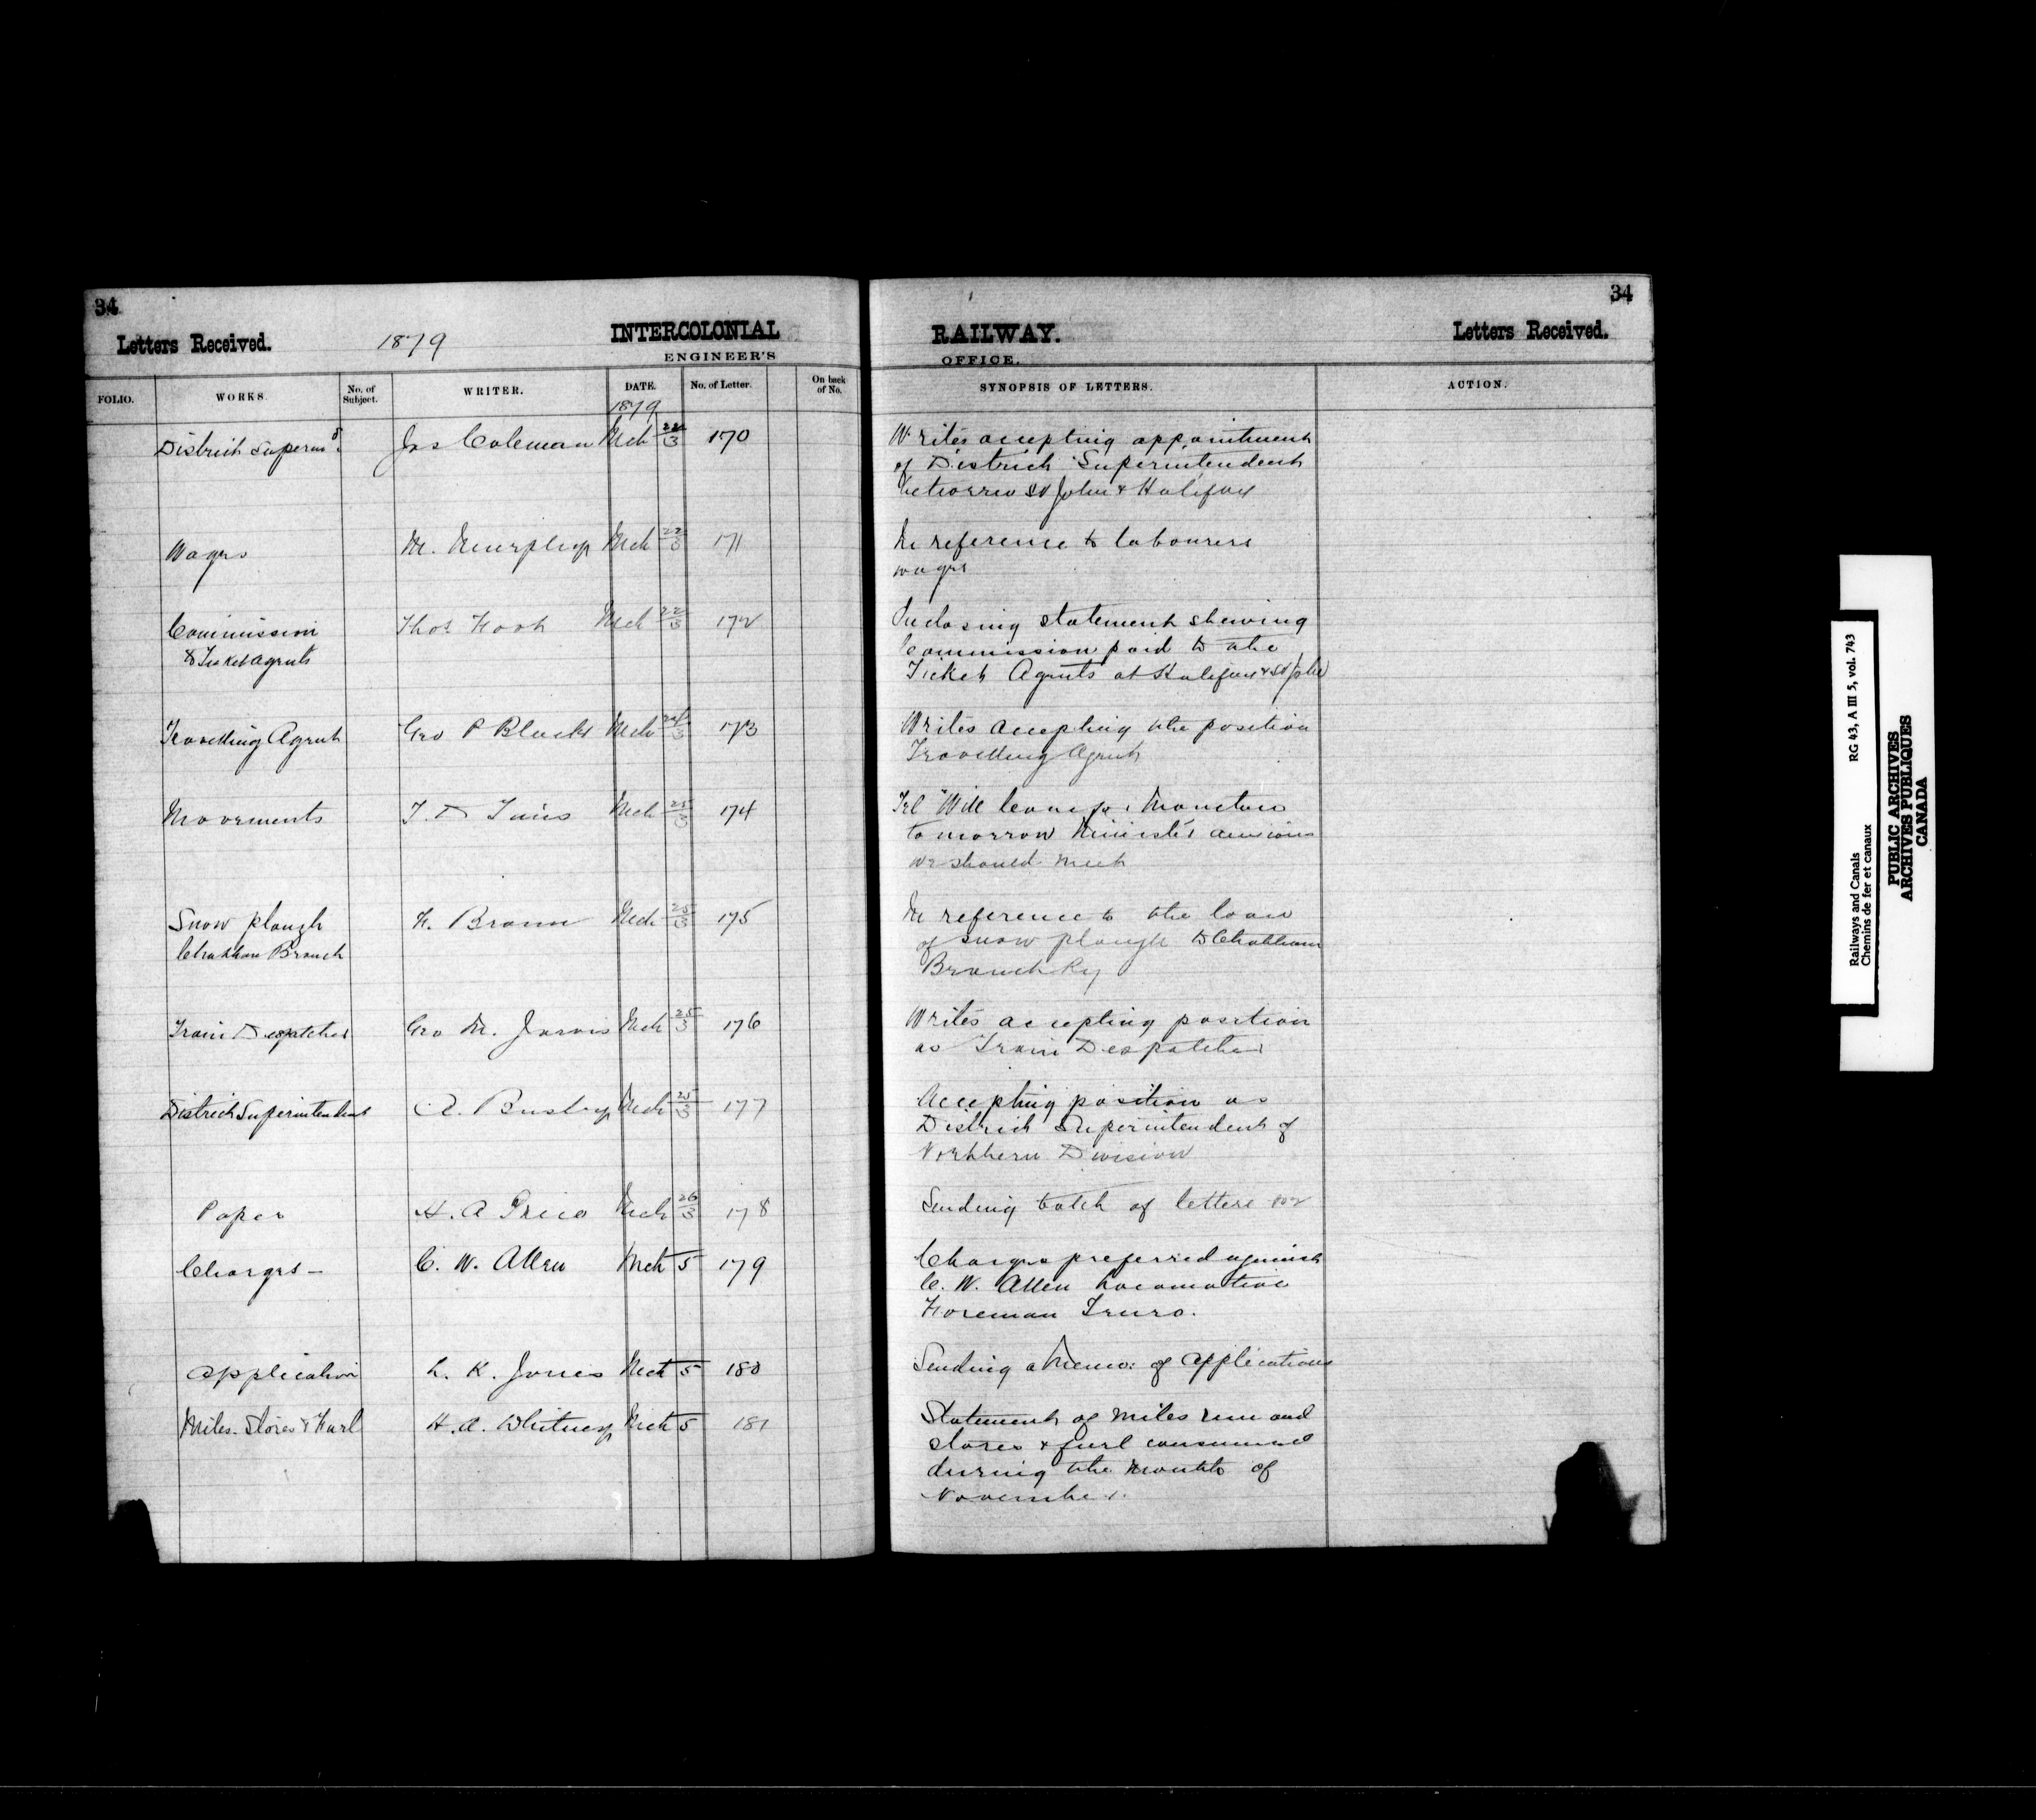 34
34
Letters Received.
1879
INTERCOLONIAL
RAILWAY.
Letters Received.
ENGINEER'S
OFFICE.
FOLIO.
WORKS.
No. of Subject.
WRITER.
DATE.
No. of Letter.
On back of No.
SYNOPSIS OF LETTERS.
ACTION.
1879
District Superin
Jas Coleman Mch 22/3 170
Writes accepting appointment
of District Superintendent
between St John & Halifax
Wages
M. Murphy Mch 22/3 171
In reference to labourers
wages
Commission
to Ticket Agents
Thos Foot Mch 22/3 172
Inclosing statement shewing
Commission paid to the
Ticket Agents at Halifax & St John
Travelling Agent
Geo P Black Mch 24/3 173
Writes accepting the position
Travelling Agent
Movements
T. D Tims Mch 25/3 174
Tel "Will leave for Moncton
tomorrow Minister
we should meet
Snow plough
Chatham Branch
F. Braun Mch 25/3 175
In reference to the loan
of snow plough to Chatham
Branch Ry
Train Despatcher
Geo M. Jarvis Mch 25/3 176
Writes accepting position
as Train Despatcher
District Superintendent
A. Busby Mch 25/3 177
Accepting position as
District Superintendent of
Northern Division
Paper
H. A Price Mch 26/3 178
Sending batch of letters for
Charges -
C. W. Allen Mch 5 179
Charges preferred against
C. W. Allen Locomotive
Foreman Truro.
Application
L. K. Jones Mch 5 180
Sending a Memo: of applications
Miles. Stores & Fuel
H. A. Whitney Mch 5 181
Statement of miles run and
stores & fuel consumed
during the month of
November.
Railways and Canals
RG 43, A III 5, vol. 743
Chemins de fer et canaux
PUBLIC ARCHIVES
ARCHIVES PUBLIQUES
CANADA